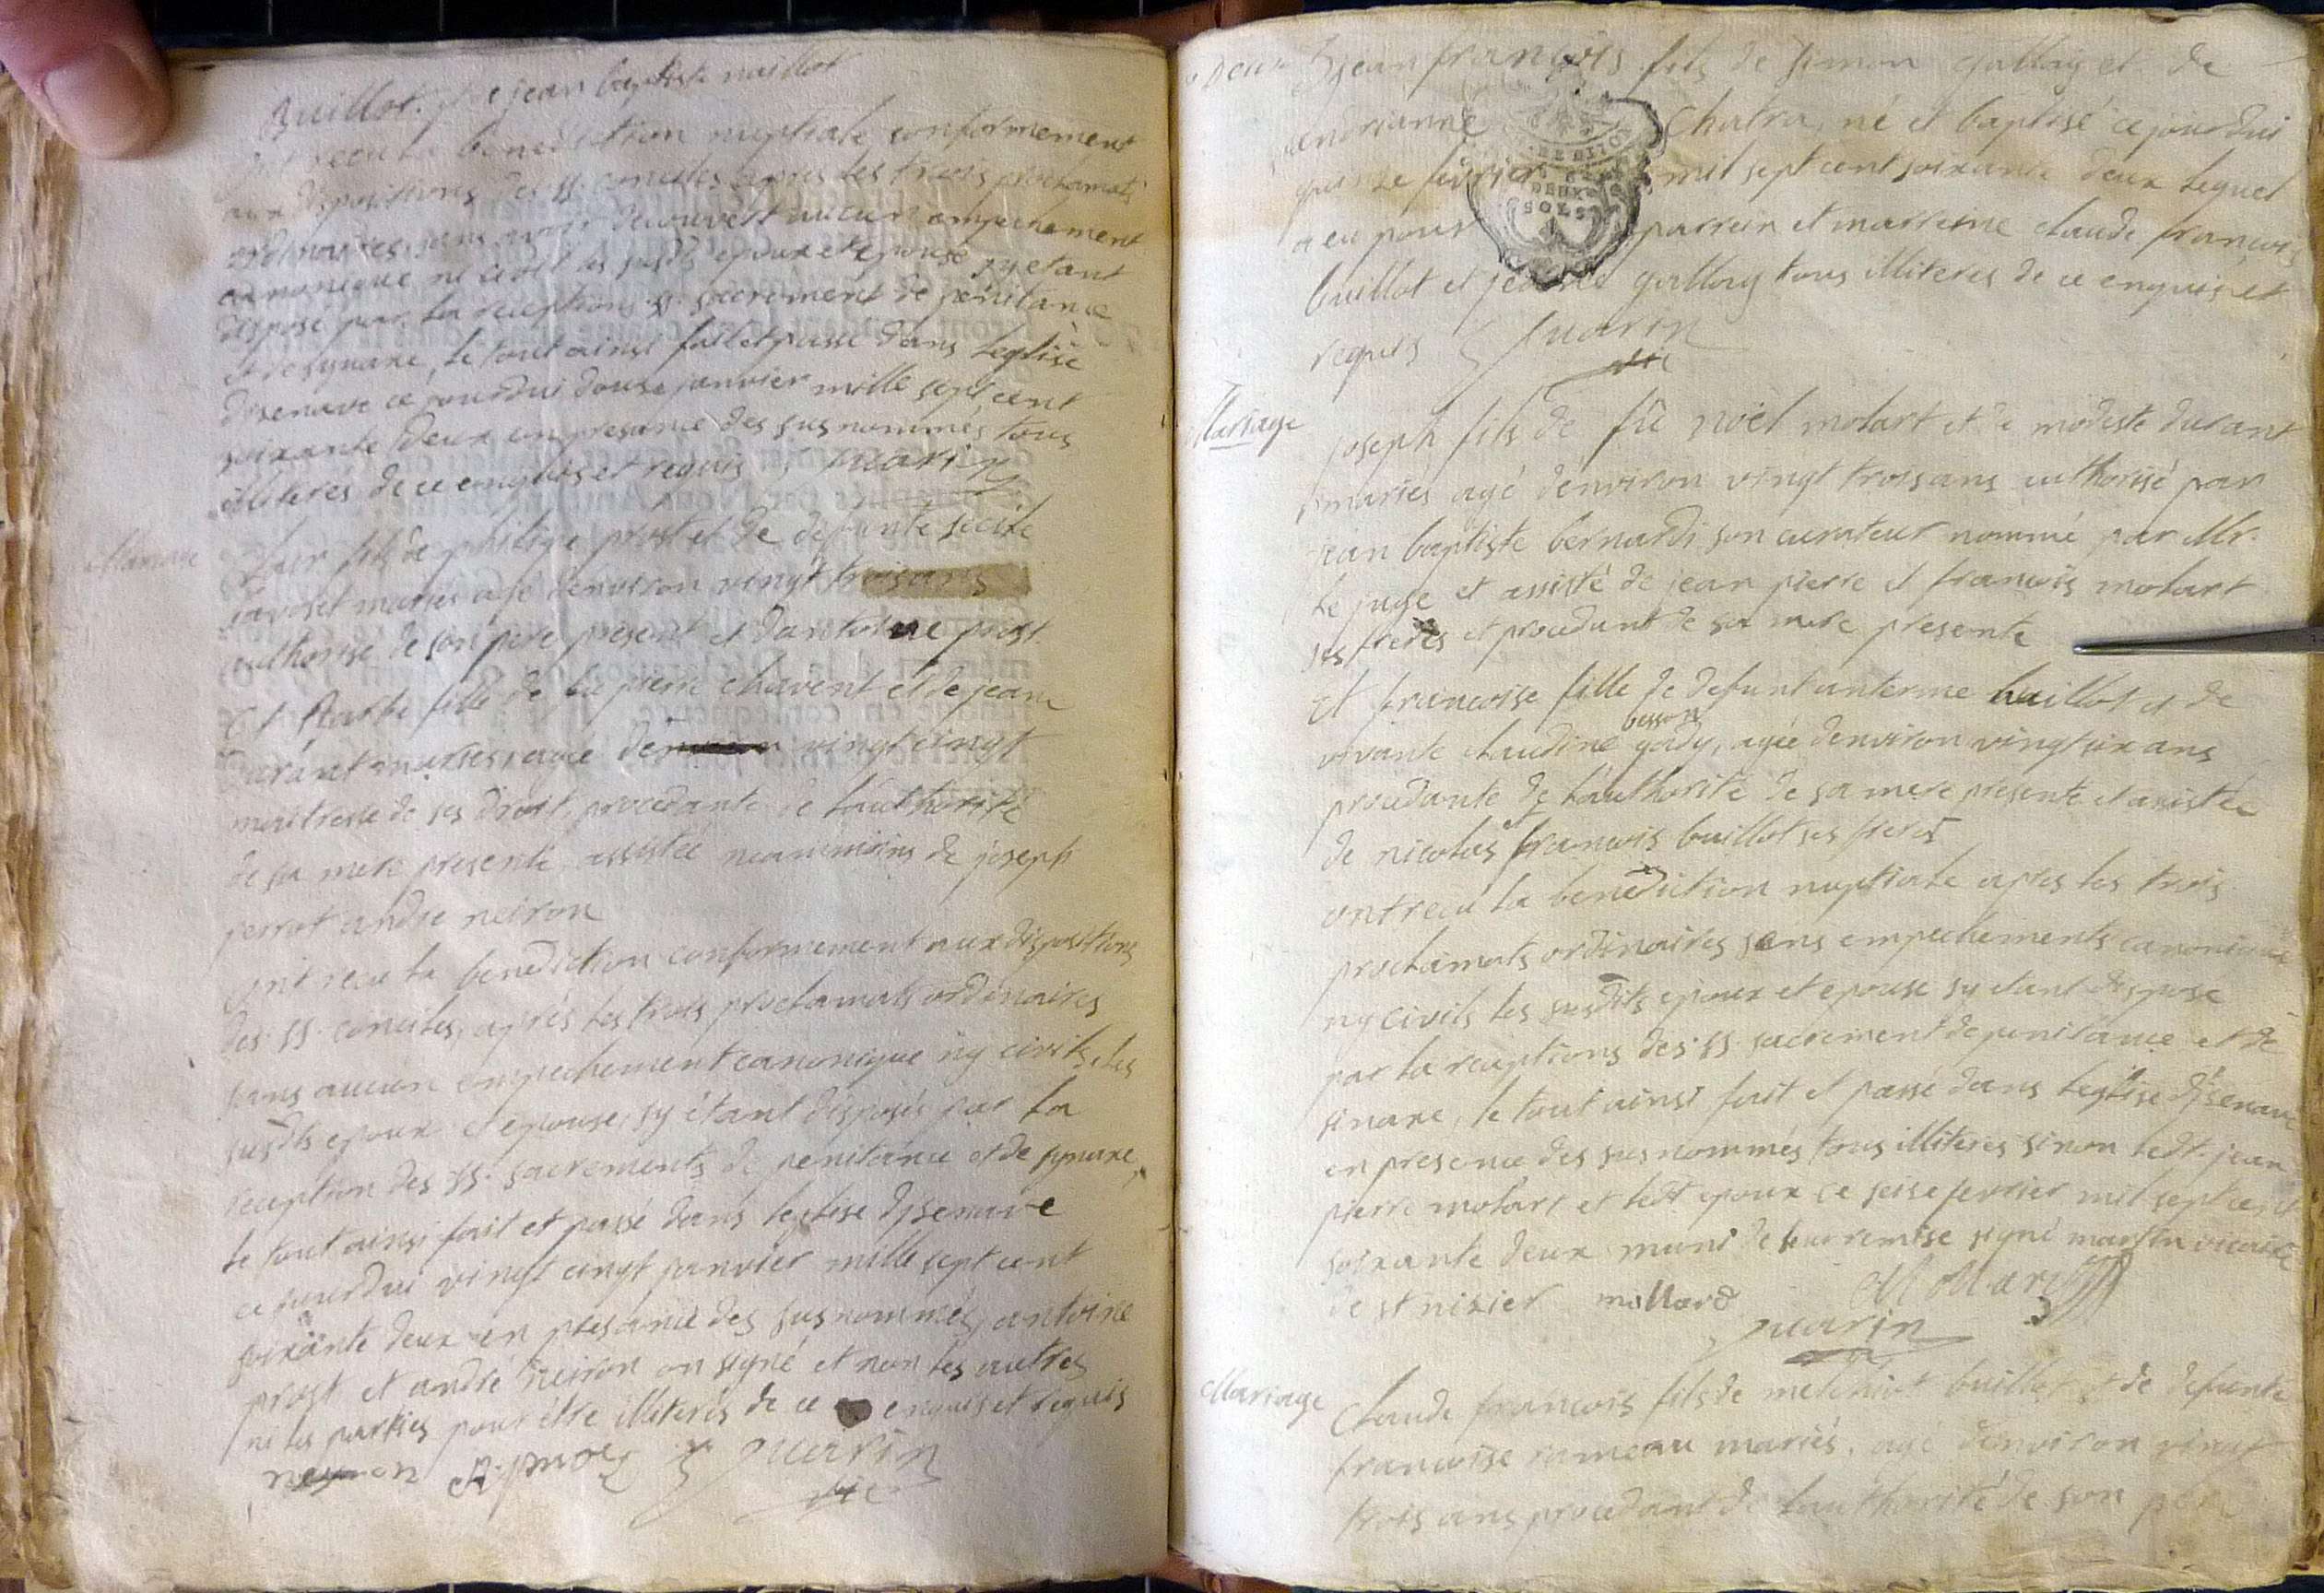 Buillot. jean baptiste maillot
ont recu la benediction nuptiale conformement
aux dispositions des SS. conciles apres les trois proclamats
ordinaires, sans avoir decouvert aucun empechement
canonique ni civil les susdts epoux et epouse sy etant
disposé par la receptions SS. sacrement de penitance
et de synaxe, le tout ainsi fait et passé dans leglise
disenave ce jourdui douse janvier mille sept cent
soixante deux en presance des susnommés tous
illiterés de ce enquis et requis
Mariage
fils de philipe prost et de defunte
mariés agé denviron vingt trois ans
authorisé de son pere present et dantoine prost
Et fille de fu pierre chavent et de jeane
durant mariés, agée vingt cinqt
maitresse de ses droit, procedante de lauthorité
de sa mere presente assistée neanmoins de joseph
perrot andre neiron
ont recu la benediction conformement aux dispositions
des SS. conciles, aprés les trois proclamats ordinaires
sans aucun empechement canonique ny civils, les
susdts epoux et epouse, sy étant disposés par la
reception des SS. sacrements de penitance et de synaxe,
le tout ainsi fait et passé dans leglise disenave
ce jourdui vingt cinqt janvier mille sept cent
soixante deux en presance des susnommés, antoine
prost et andré neiron on signé et non les autres
ni les parties pour étre illiterés de ce enquis et requis
A. prost
jean françois fils de simon gallay et de
chatra, né et baptisé ce jourdui
fevrier mil sept cent soixante deux lequel
a eu pour parrein et marreine claude francois
buillot et gallay tous illiteres de ce enquis et
requis
DEUX
SOLS
Mariage
joseph fils de fû noel molart et de modeste durant
mariés agé denviron vingt trois ans authorisé par
jean baptiste bernard son curateur nommé par Mr.
le juge et assisté de jean pierre et francois molart
ses freres et procedant de sa mere presente
Et francoise fille de defunt anterme buillot et de
besson
vivante claudine gody, agée denviron vingt six ans
procedante de lauthorité de sa mere presente et assistée
de nicolas et francois buillot ses freres
ont recu la benediction nuptiale apres les trois
proclamats ordinaires sans empechements canonique
ny civils les susdits epoux et epouse sy etant disposé
par la receptions des SS. sacrement de penitance et de
sinaxe, le tout ainsi fait et passé dans leglise disenave
en presence des susnommés tous illiteres sinon ledt. jean
pierre molart et ledt epoux ce seise fevrier mil sept cent
soixante deux muni de leur remise signé martin vicaire
de st nisier mollard
Mariage
claude francois fils de melchiot buillot et de defunte
francoise rameau mariés, agé denviron vingt
trois ans procedant de lauthorité de son pere